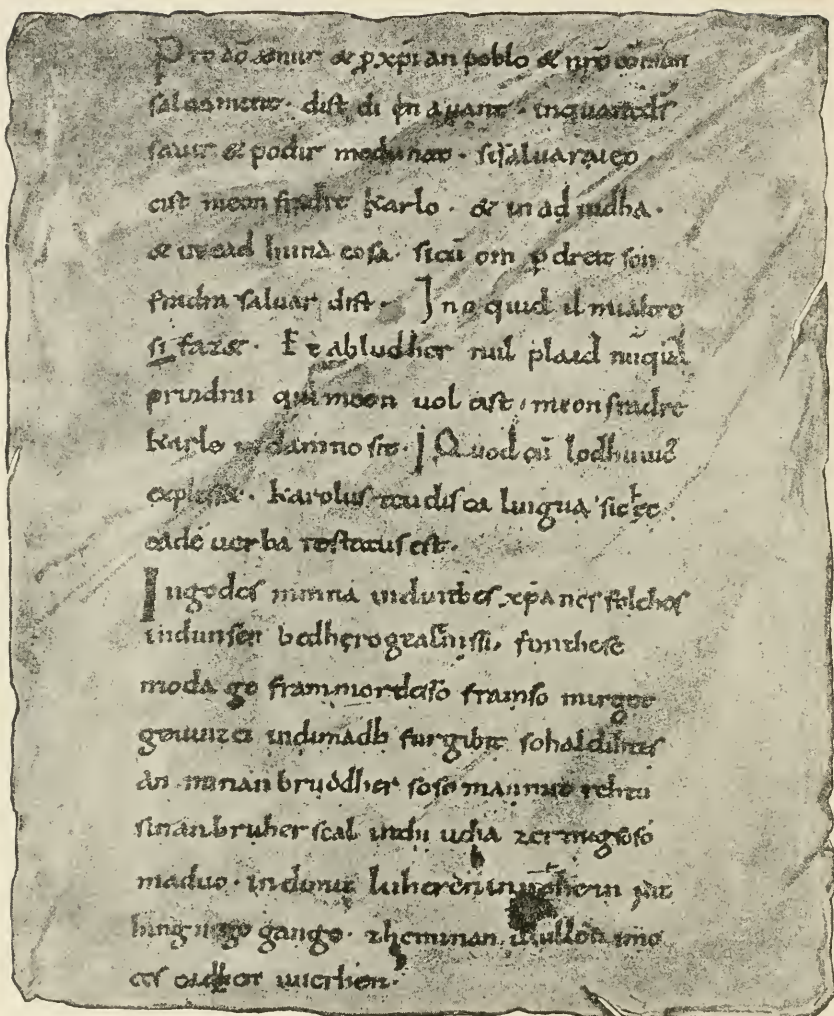 Pro dō amur & p xp̄ian poblo & nrō cōmun
saluament. dist di en auant. inquantd̄s
sauir & podir medunat. sisaluaraieo.
cist meon fradre karlo. & in ad iudha.
& in cad huna cosa. sicū om p dreit son
fradra saluar dist. Ino quid il mialtre
si fazet. Et abludher nul plaid nūquā
prindrai qui meon uol cist. meon fradre
karlo in damno sit. Quod cū lodhuuic
explesset. karolus teudisca lingua sic hec
eadē uerba testatus est.
Ingodes minna induithes xp̄anes folches
indunser bedhero gealtnissi. fonthese
moda ge frammordesso framso mirgot
geuuizci indimadh furgibit sohaldihtes
an minan bruodher soso mannit rehtu
sinan bruher scal indi utha zermigsoso
maduo. indimit luheren in nohein iut
hing nege gango. zheminan uuillon imo
ces cadhen uuerhen.